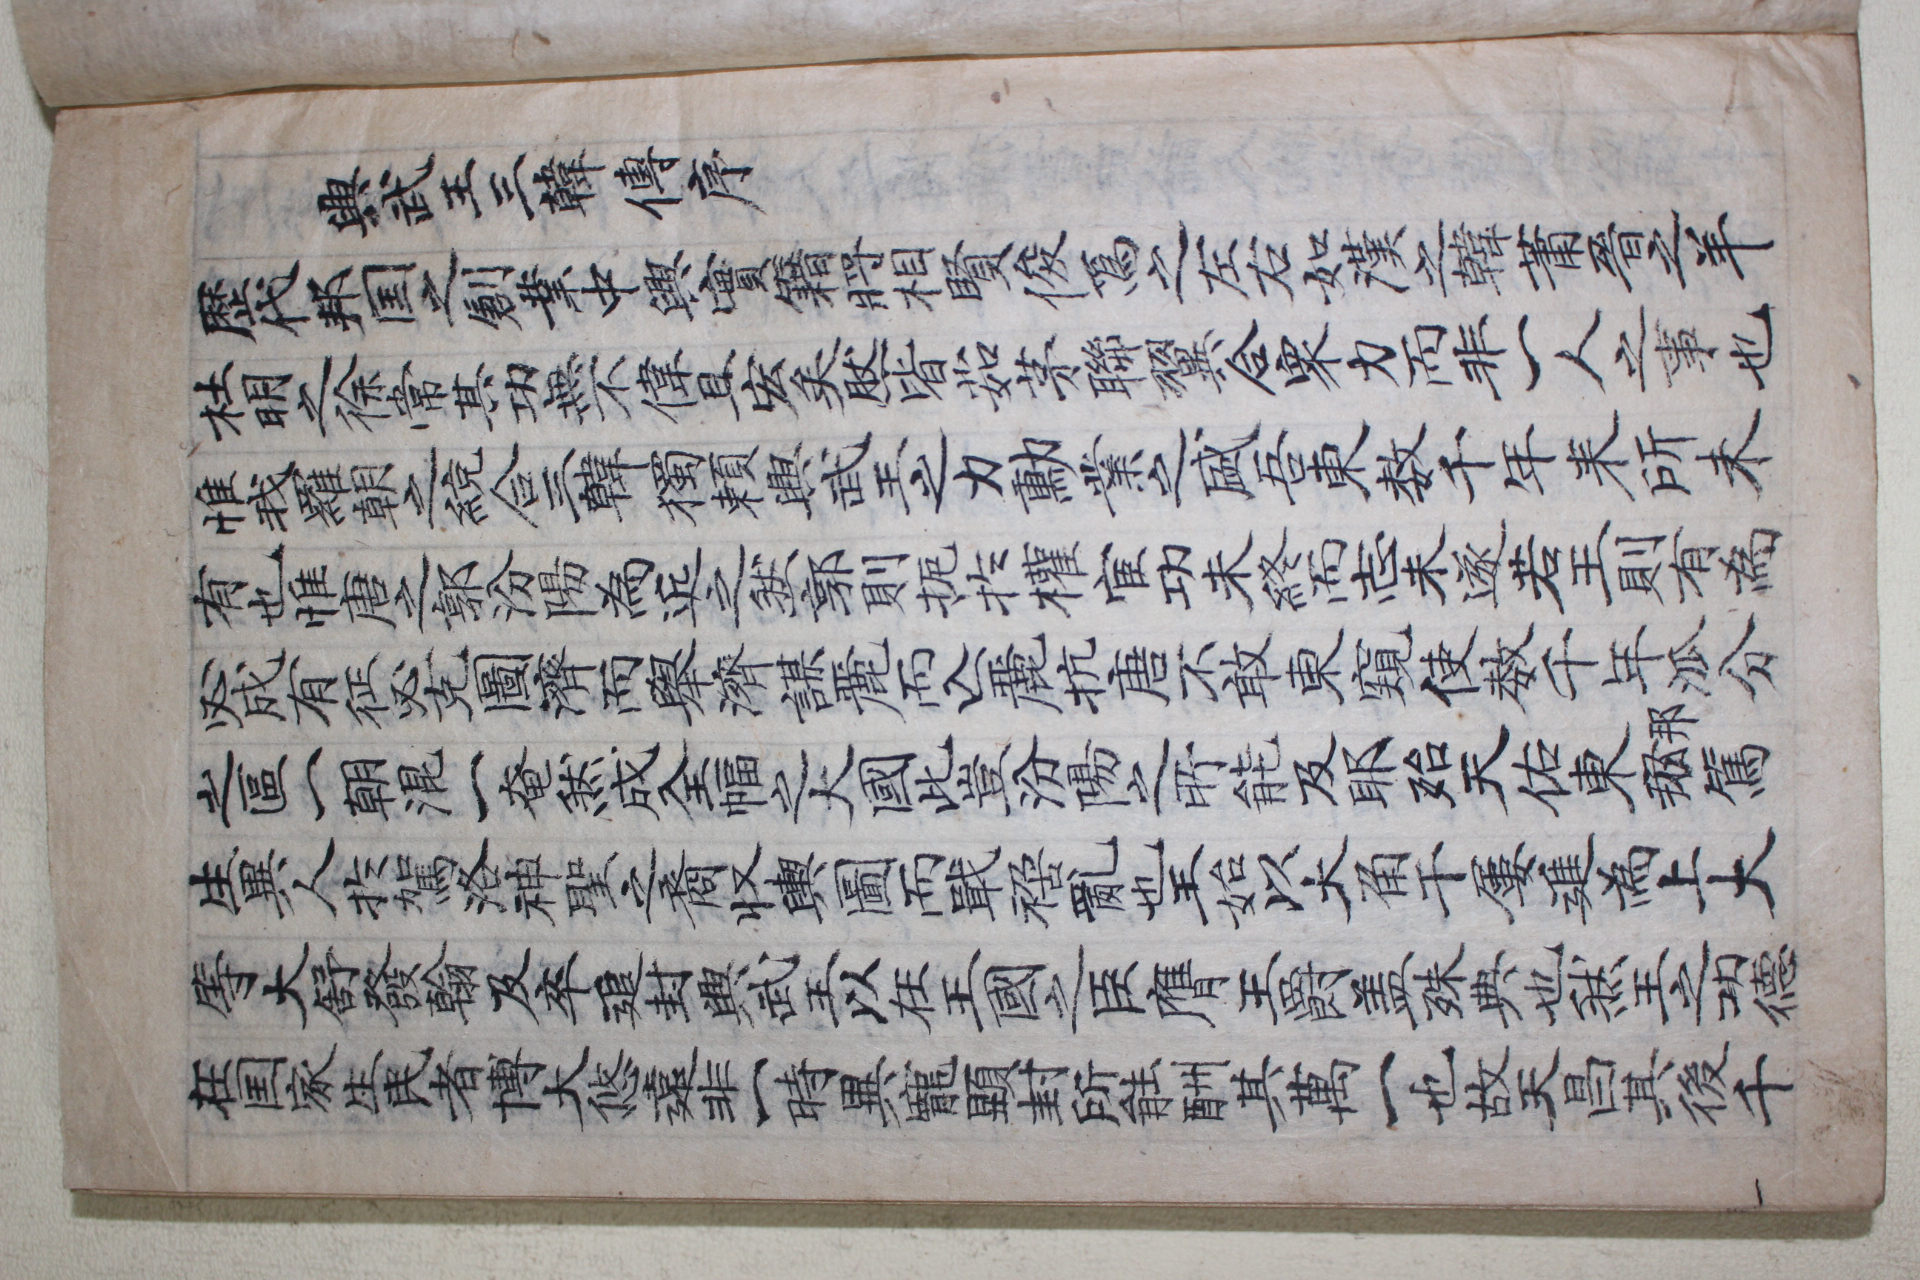 興武王三韓傳序
歷代邦国之創業中興實籍將相賢俊爲之左右如漢之韓蕭晉之羊
杜明之徐常其功無不偉且宏矣然皆如茅聯翼合衆力而非一人之事也
惟我羅朝之統合三韓獨賴興武王之力勳業之盛吾東数千年来所未
有也惟唐之郭汾陽為近之然郭則扼於權宦功未終而志未遂若王則有為
必成有征必克圖濟而擧濟謀麗而亾麗抗唐不敢東窺使数千年瓜分
之區一朝混一奄然成全幅之大國此豈汾陽之所能及耶殆天佑東邦篤
生異人於駕洛神聖之裔收輿圖而戢禍亂也王始以大角干屢進為上大
等大舒發翰及卒追封興武王以在王國之臣膺王爵盖殊典也然王之功德
在国家生民者博大悠遠非一時異寵顯封所能酬其萬一也故天昌其後千
一